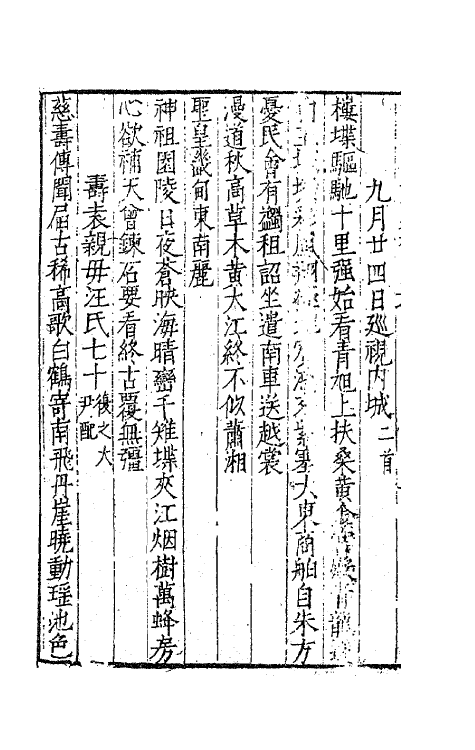 九月廿四日巡視内城二首
樓堞驅馳十里强始看青旭上扶桑黄金
塞大東商舶自朱方
憂民會有蠲租詔坐遣南車送越裳
漫道秋高草木黄大江終不似蕭湘
聖皇畿甸東南麗
神祖園陵日夜蒼映海晴巒千雉堞夾江烟樹萬蜂房
心欲補天曾鍊石要看終古覆無彊
壽袁親母汪氏七十復之大尹配
慈壽傳聞届古稀高歌白鶴嵜南飛丹崖曉動瑶池色